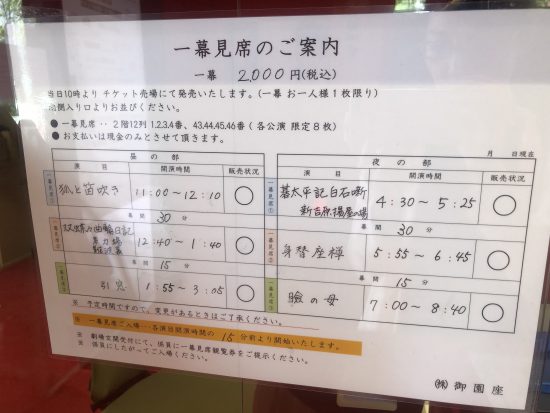 一幕見席のご案内
一幕 2,000円(税込)
当日10時より チケット売場にて発売いたします。(一幕 お一人様1枚限り)
側入り口よりお並びください。
● 一幕見席‥ 2階12列 1,2,3,4番、43,44,45,46番 ( 各公演 限定8枚)
● お支払いは現金のみとさせて頂きます。
月 日現在
昼の部 夜の部
演目 開演時間 販売状況 演目 開演時間 販売状況
一幕見席① 狐と笛吹き 11:00～12:10 ○
一幕見席① 碁太平記白石噺 新吉原揚屋の場 4:30～5:25 ○
幕間 30分 幕間 30分
一幕見席② 双蝶々曲輪日記 12:40～1:40 ○
一幕見席② 身替座禅 5:55～6:45 ○
幕間 15分 幕間 15分
引窓 1:55～3:05 ○
一幕見席③ 瞼の母 7:00～8:40 ○
※ 予定時間ですので、変更があるときはご了承ください。
※ 一幕見席ご入場‥‥各演目開演時間の 15分前より開始いたします。
※ 劇場玄関受付にて、係員に一幕見席観覧券をご提示ください。
※ 係員にしたがってご入場ください。
㈱御園座